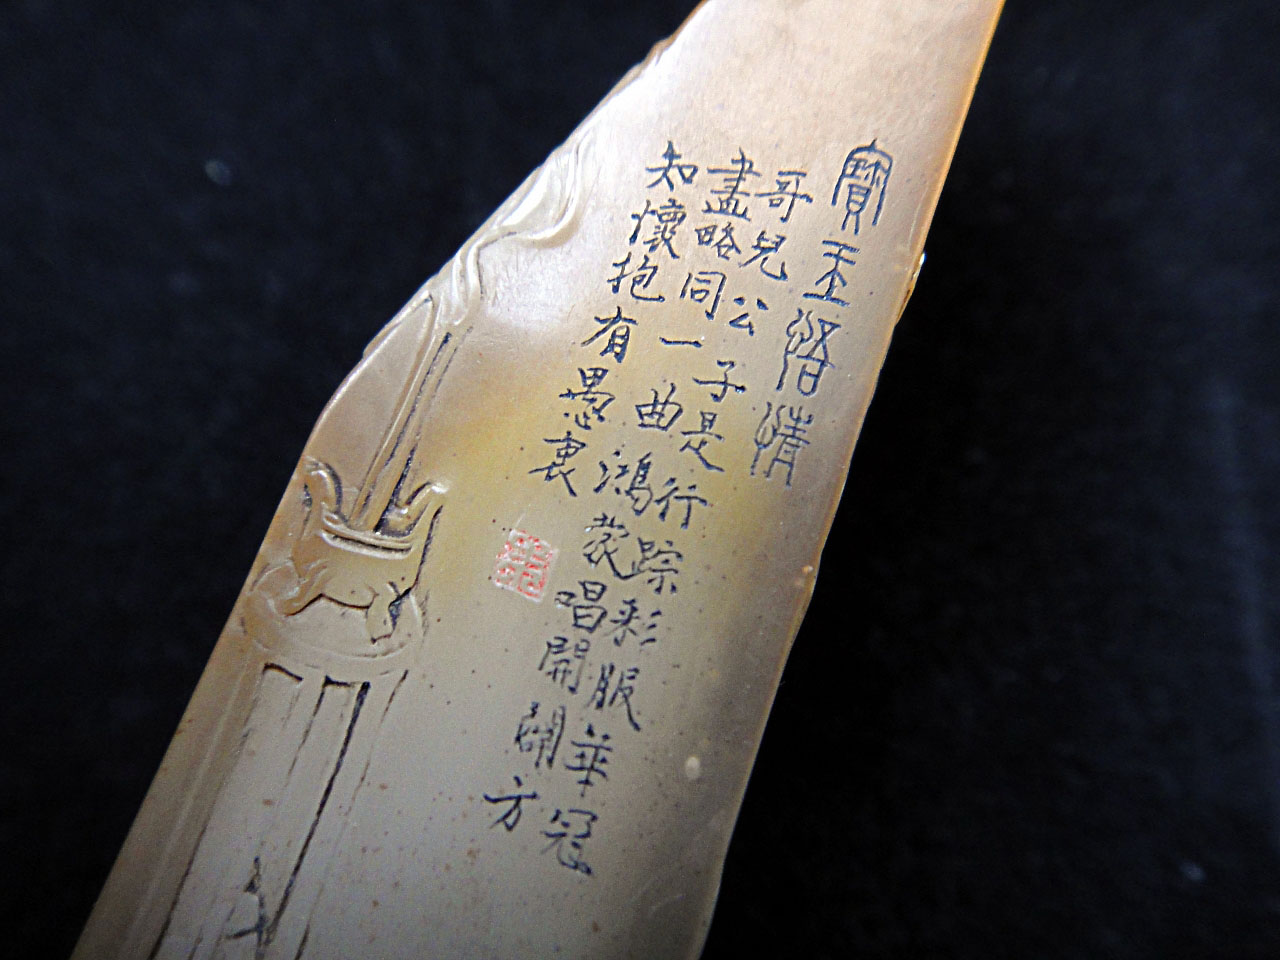 寶玉悟情
哥兒公子是行踪彩服華冠
盡略同一曲鴻蒙唱開闢方
知懷抱有愚衷